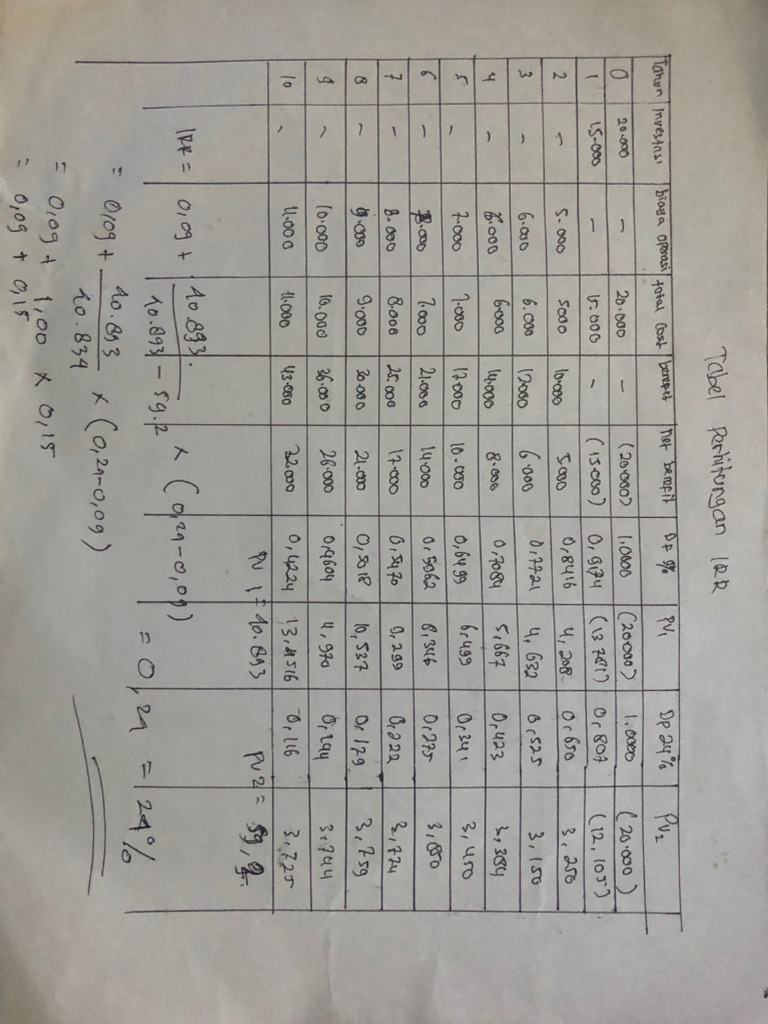 Tabel Perhitungan IRR
Tahun Investasi biaya operasi total cost benepit net benepit DF 9% PV1 DP 24% PV2
0 20.000 - 20.000 - (20.000) 1.0000 (20.000) 1.0000 (20.000)
1 15.000 - 15.000 - (15.000) 0,9174 (13.761) 0,807 (12,105)
2 - 5.000 5000 10.000 5.000 0,8416 4,208 0,650 3,250
3 - 6.000 6.000 12000 6.000 0,7721 4,632 0,525 3,150
4 - 6.000 6.000 14000 8.000 0,7084 5,667 0,423 3,384
5 - 7.000 7.000 17.000 10.000 0,6499 6,499 0,341 3,450
6 - 7.000 21.000 14.000 0,5962 8,346 0,275 3,850
7 - 8.000 8.000 25.000 17.000 0,5470 9,299 0,222 3,774
8 - 9.000 9.000 30.000 21.000 0,5018 10,537 0,179 3,759
9 - 10.000 10.000 36.000 26.000 0,4604 4,970 0,144 3.744
10 - 11.000 11.000 43.000 32.000 0,4224 13,4516 0,116 3,725
PV 1 = 10.893 PV 2 = 59,2
IRR = 0,09 + 10.893 / 10.893 - 59.2 x (0,24-0,09) = 0,24 = 24%
= 0,09 + 10.893 / 10.834 x (0,24-0,09)
= 0,09 + 1,00 x 0,15
= 0,09 + 0,15